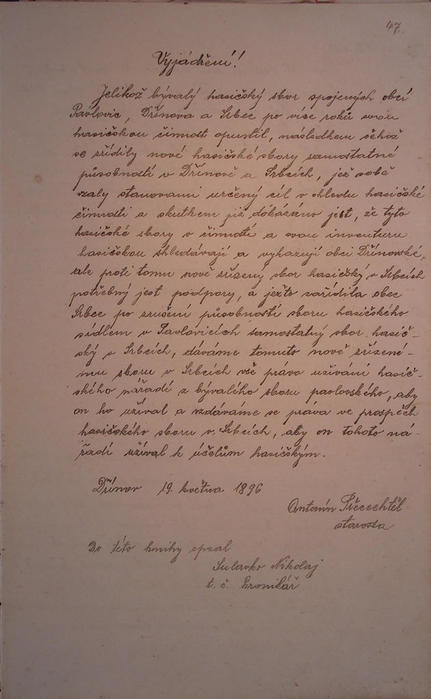 47.
Vyjádření!
Jelikož bývalý hasičský sbor spojených obcí
Pavlovic, Dřínova a Srbce po více roků svou
hasičskou činnost opustil, následkem čehož
se zřídily nové hasičské sbory samostatné
působnosti v Dřínově a Srbcích, jež sobě
vzaly stanovami určený cíl v ohledu hasičské
činnosti a skutkem již dokázáno jest, že tyto
hasičské sbory v činnosti a svou inventuru
hasičskou shledávají a vykazují obci Dřínovské,
ale proti tomu nově zřízený sbor hasičský v Srbcích
potřebný jest podpory, a ježto nařídila obec
Srbce po zrušení působnosti sboru hasičského
sídlem v Pavlovicích samostatný sbor hasič-
ský v Srbcích, dáváme tomuto nově zřízené-
mu sboru v Srbcích vše právo užívání hasič-
ského nářadí z bývalého sboru pavlovského, aby
on ho užíval a vzdáváme se práva ve prospěch
hasičského sboru v Srbcích, aby on tohoto ná-
řadí užíval k účelům hasičským.
Dřínov 19. května 1896
Antonín
starosta
Do této knihy opsal
Sulavko Nikolaj
t. č. kronikář